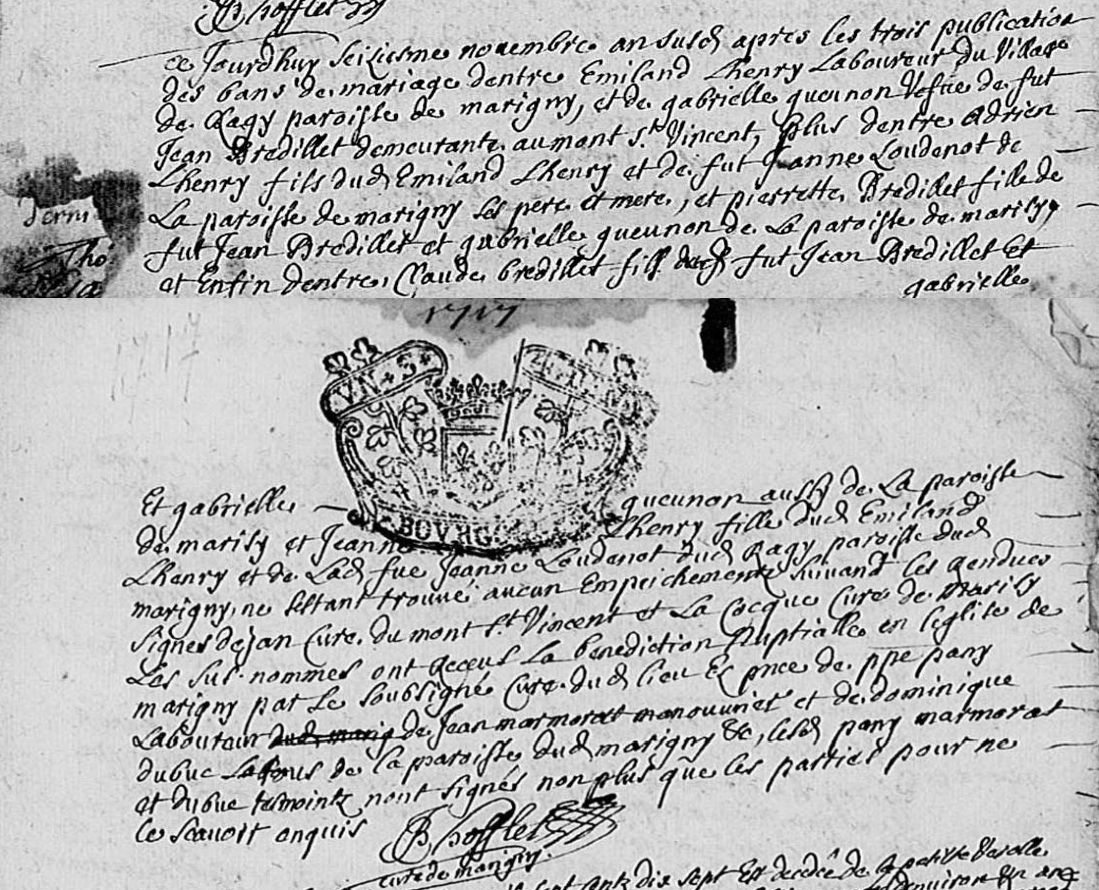 B Chofflet
ce Jourdhuy Seiziesme novembre an susd apres les trois publication
des bans de mariage dentre Emiland Lhenry Laboureur du village
de Ragy paroisse de marigny, et de gabrielle queunon vefve de fut
Jean Bredillet demeurante au mont st Vincent, Plus dentre Adrien
Lhenry fils dud Emiland Lhenry et de fut Jeanne Loudenot de
La paroisse de marigny Ses pere et mere, et pierrette Bredillet fille de
fut Jean Bredillet et gabrielle queunon de La paroisse de marisy,
et Enfin dentre Claude bredillet fils fut Jean Bredillet et
gabrielle
derni
Tho
1717
1717
VN S
BOVRG
Et gabrielle queunon aussy de La paroisse
de marisy et Jeanne Lhenry fille dud Emiland
Lhenry et de Lad fue Jeanne Loudenot dud Ragy paroisse dud
marigny, ne sestant trouvé aucun Empeichement suivand les Rendues
signes dejan Curé du mont st Vincent et La Cocque Curé de Marisy
Les sus nommes ont Receus La benediction Nuptialle en leglise de
marigny par Le soubsigné Curé dud lieu Es pnce de ppe pany
Laboureur de Jean marmorat manouvrier et de dominique
dubuc de la paroisse dud marigny &c, lesd pany marmorat
et dubuc tesmointz nont signés non plus que les parties pour ne
Le scavoir enquis B Chofflet
curé de marigny.
sept cents dix sept Est decedé de